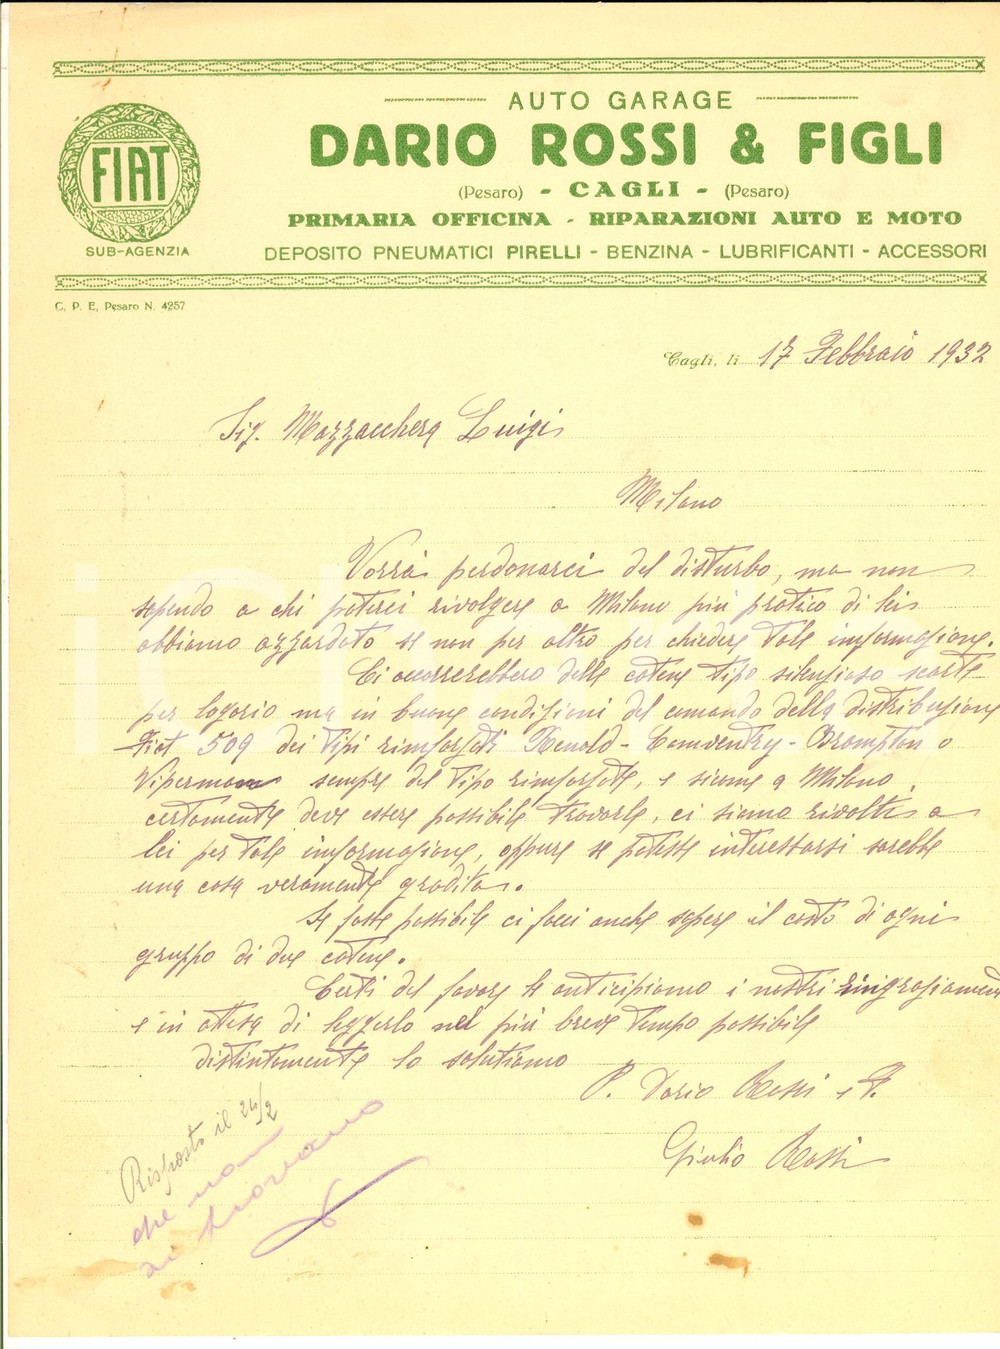 AUTO GARAGE
DARIO ROSSI & FIGLI
(Pesaro) - CAGLI - (Pesaro)
PRIMARIA OFFICINA - RIPARAZIONI AUTO E MOTO
DEPOSITO PNEUMATICI PIRELLI - BENZINA - LUBRIFICANTI - ACCESSORI
FIAT
SUB-AGENZIA
C. P. E. Pesaro N. 4257
Cagli, li 17 Febbraio 1932
Sig. Mazzacchera Luigi
Milano
Vorrà perdonarci del disturbo, ma non
sapendo a chi poterci rivolgere a Milano più pratico di lei
abbiamo azzardato se non per altro per chiedere tale informazione.
Ci occorrerebbero delle catene tipo silenzioso scarte
per logorio ma in buone condizioni del comando della distribuzione
Fiat 509 dei tipi rinforzati Renold - Comventry - Brompton o
Viperman sempre del tipo rinforzate, e siccome a Milano
certamente deve essere possibile trovarle, ci siamo rivolti a
lei per tale informazione, oppure se potesse interessarsi sarebbe
una cosa veramente gradita.
Se fosse possibile ci facci anche sapere il costo di ogni
gruppo di due catene.
Certi del favore le anticipiamo i nostri ringraziamenti
e in attesa di leggerlo nel più breve tempo possibile
distintamente lo salutiamo
P. Dario Rossi e F.
Giulio Rossi
Risposto il 24/2
che non
si trovano